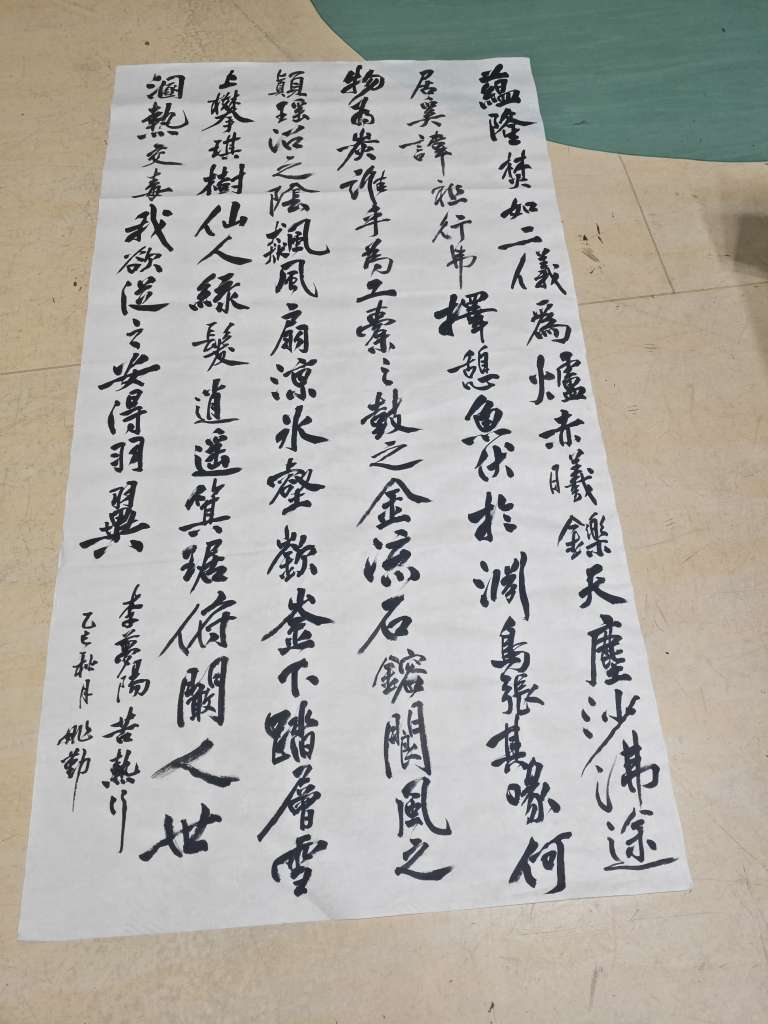 蘊隆焚如二儀為爐赤曦鑠天塵沙沸途
居奚諱襁行弗擇憩魚伏於渊鳥張其喙何
物為炭誰手為工橐之鼓之金流石鎔閬風之
顛瑶沼之陰飇風扇涼氷壑嶔崟下踏層雪
上攀琪樹仙人緑髮逍遥箕踞俯闞人世
涸熱交毒我欲從之安得羽翼
李夢陽苦熱行
乙巳秋月 姚勤